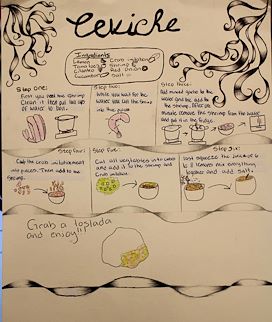 Ceviche
Ingredients
Lemon Crab imitation
Tomatoes Shrimp
Cilantro Red Onion
Cucumber Salt
Step one:
First you need the shrimp
Clean it then put the cup
of water to boil.
Step two:
While you wait for the
water you cut the shrimp
into
Step three:
Put minced garlic to the
water and the add the
the shrimp. After
minute remove the shrimp from the water
and put it in the fridge.
Step four:
Cut the crab imitation meat
into pieces. Then add to the
shrimp.
Step five:
Cut all vegetables into cubes
and add it to the shrimp and
crab imitation
Step six:
Last squeeze the juice of 6
to 11 lemons mix everything
together and add salt.
Grab a tostada
and enjoy!!